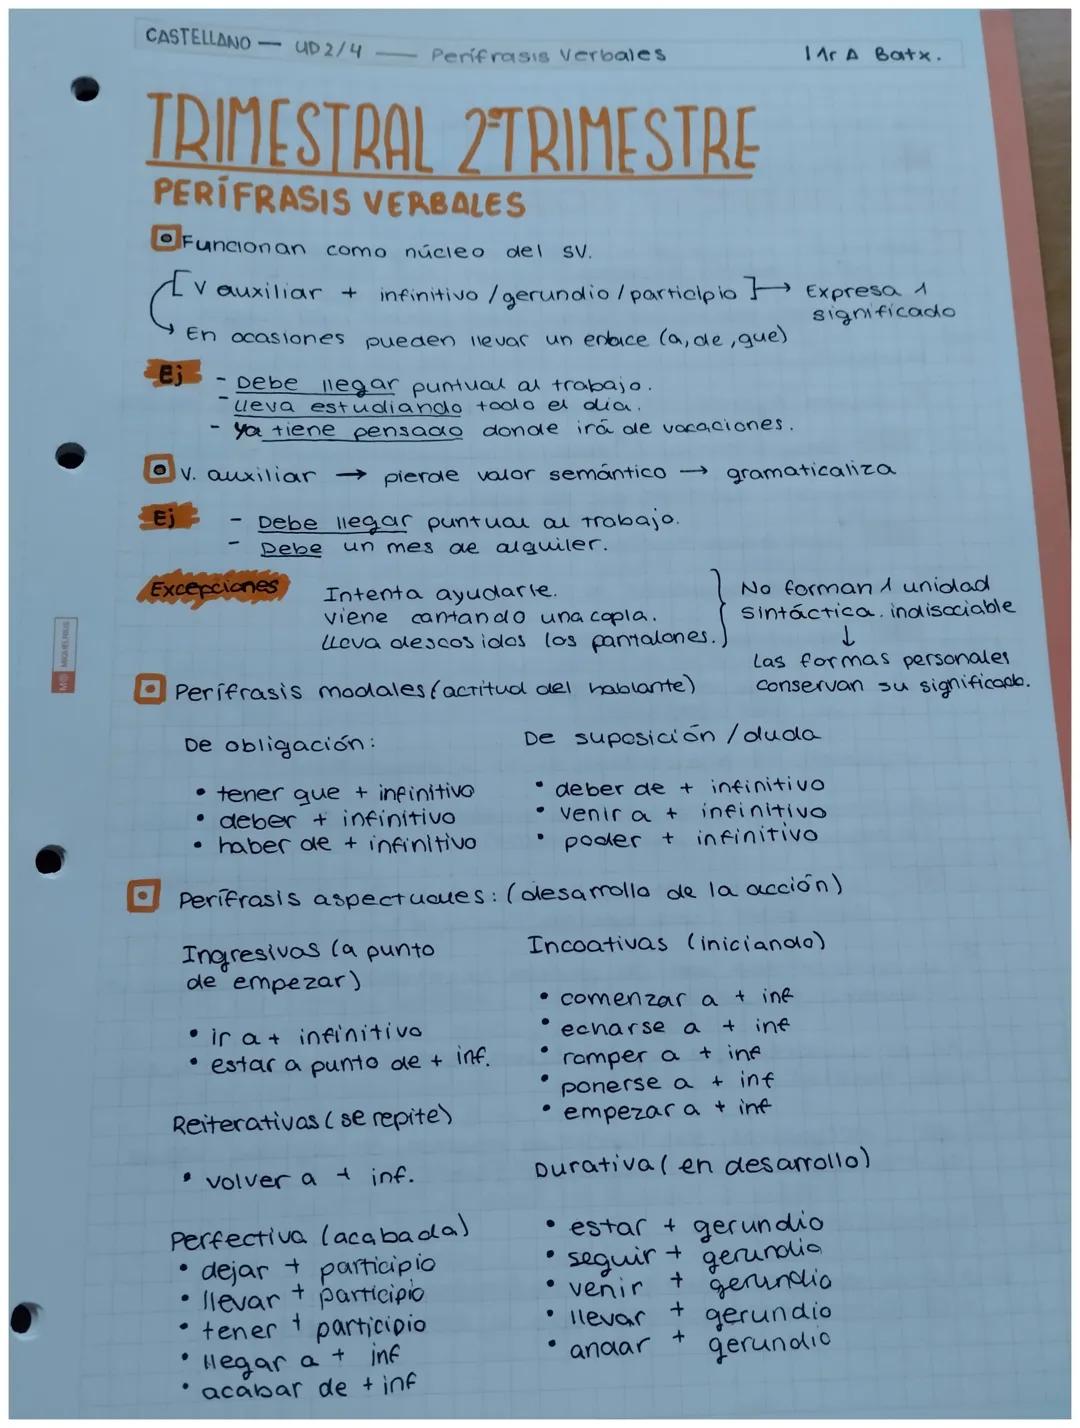 CASTELLANO — UD 2/4 — Perífrasis Verbales 1 1r A Batx.
TRIMESTRAL 2ºTRIMESTRE
PERÍFRASIS VERBALES
Funcionan como núcleo del SV.
[V auxiliar + infinitivo / gerundio / participio] → Expresa 1 significado
→ En ocasiones pueden llevar un enlace (a, de, que)
Ej - Debe llegar puntual al trabajo.
- Lleva estudiando todo el día.
- Ya tiene pensado donde irá de vacaciones.
V. auxiliar → pierde valor semántico → gramaticaliza
Ej - Debe llegar puntual al trabajo.
- Debe un mes de alquiler.
Excepciones Intenta ayudarte.
Viene cantando una copla.
Lleva descosidos los pantalones.
No forman 1 unidad
sintáctica. indisociable
↓
Las formas personales
conservan su significado.
MIQUELRIUS
Perífrasis modales (actitud del hablante)
De obligación:
• tener que + infinitivo
• deber + infinitivo
• haber de + infinitivo
De suposición / duda
• deber de + infinitivo
• venir a + infinitivo
• poder + infinitivo
Perífrasis aspectuales: (desarrollo de la acción)
Ingresivas (a punto
de empezar)
• ir a + infinitivo
• estar a punto de + inf.
Incoativas (iniciando)
• comenzar a + inf
• echarse a + inf
• romper a + inf
• ponerse a + inf
• empezar a + inf
Reiterativas (se repite)
• volver a + inf.
Durativa (en desarrollo)
• estar + gerundio
• seguir + gerundio
• venir + gerundio
• llevar + gerundio
• andar + gerundio
Perfectiva (acabada)
• dejar + participio
• llevar + participio
• tener + participio
• llegar a + inf
• acabar de + inf